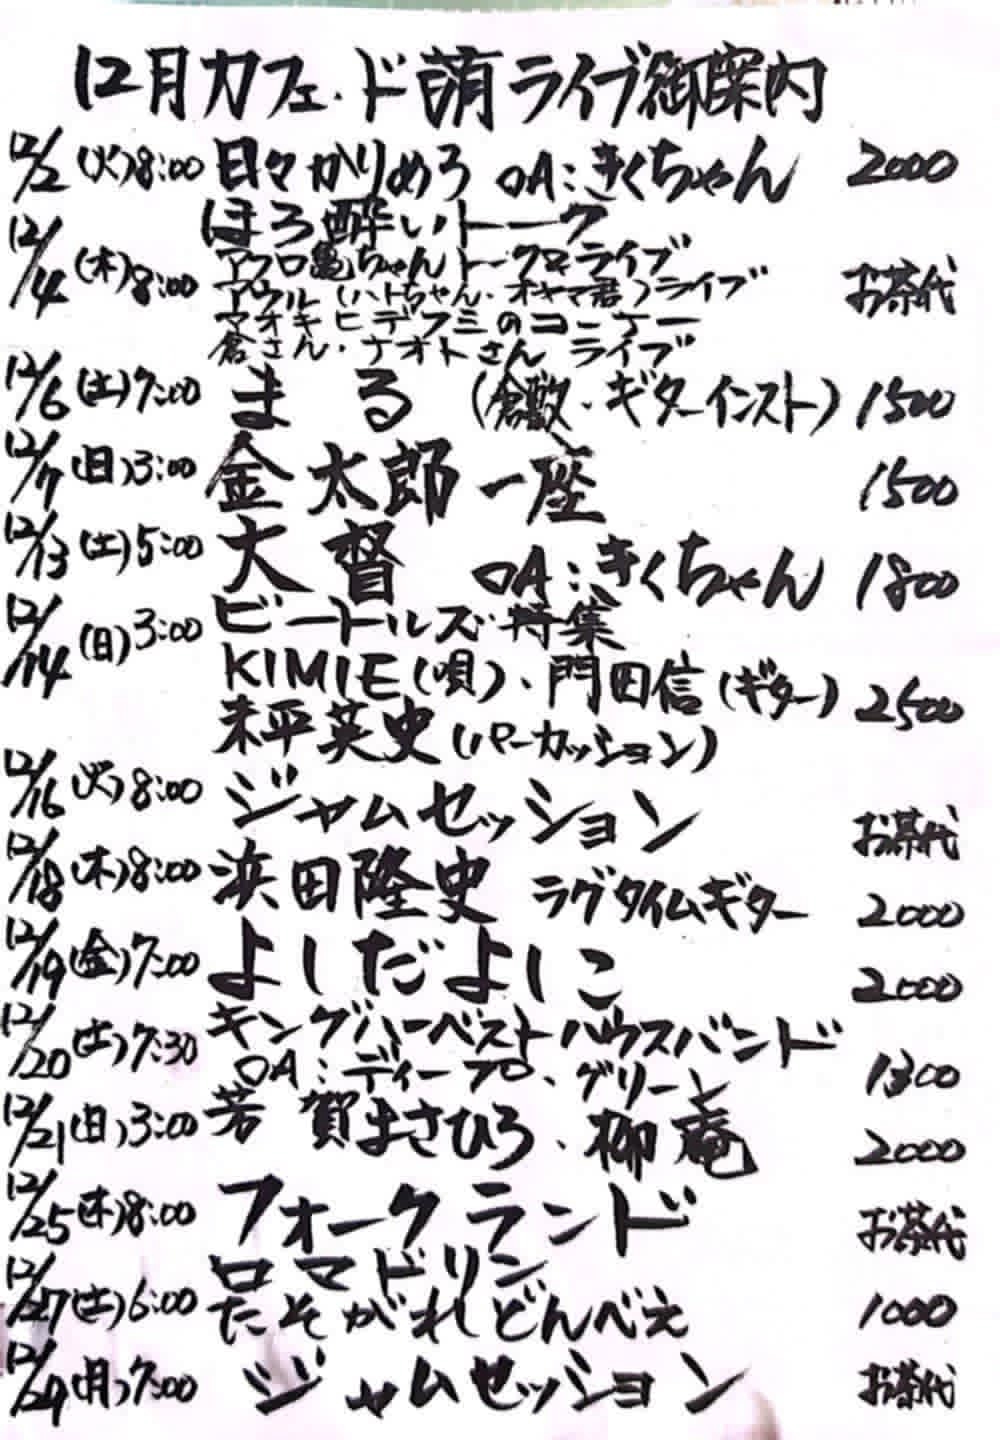 12月カフェ・ド萌ライブ御案内
12/2 (火)8:00 日々かりめろ OA:きくちゃん 2000
12/4 (木)8:00 ほろ酔いトーク お茶代
アフロ亀ちゃんトーク&ライブ
アウル(ハトちゃん・オヤマ君)ライブ
マオキヒデフミのコーナー
倉さん・ナオトさん ライブ
12/6 (土)7:00 まる (倉敷・ギターインスト) 1500
12/7 (日)3:00 金太郎一座 1500
12/13 (土)5:00 大督 OA:きくちゃん 1800
12/14 (日)3:00 ビートルズ特集
KIMIE(唄)、門田信(ギター) 2500
末平英史(パーカッション)
12/16 (火)8:00 ジャムセッション お茶代
12/18 (木)8:00 浜田隆史 ラグタイムギター 2000
12/19 (金)7:00 よしだよしこ 2000
12/20 (土)7:30 キングハーベストハウスバンド
OA:ディープ・グリーン 1300
12/21 (日)3:00 芳賀まさひろ・柳庵 2000
12/25 (木)8:00 フォークランド お茶代
12/27 (土)6:00 ロマドリン
たそがれどんべえ 1000
12/29 (月)7:00 ジャムセッション お茶代